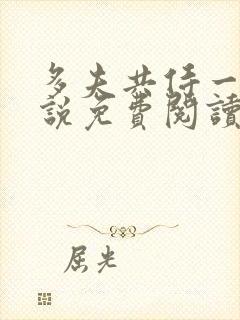 多夫共侍一
説免費閱讀
屈光